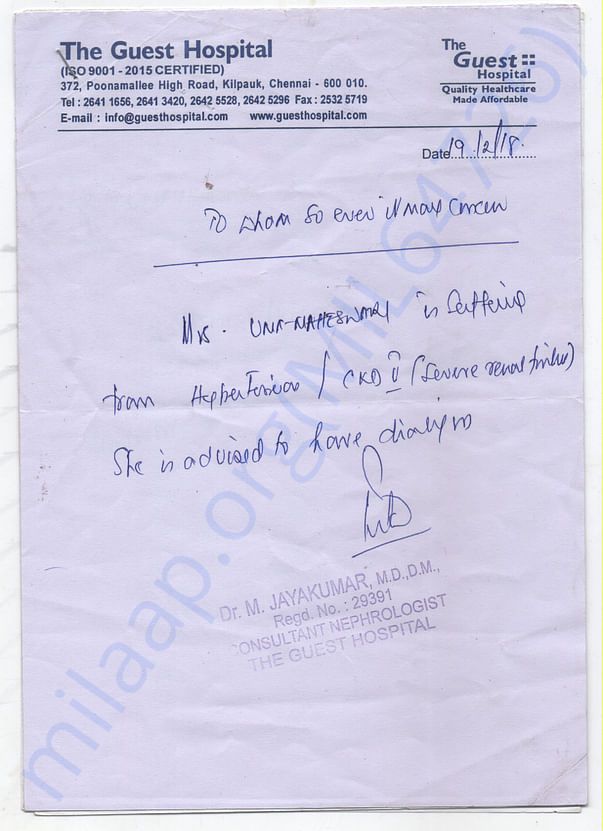 The Guest Hospital
(ISO 9001 - 2015 CERTIFIED)
372, Poonamallee High Road, Kilpauk, Chennai - 600 010.
Tel : 2641 1656, 2641 3420, 2642 5528, 2642 5296 Fax : 2532 5719
E-mail : info@guesthospital.com www.guesthospital.com
The
Guest
Hospital
Quality Healthcare
Made Affordable
Date 19/2/18.
To whom so ever it may concern
Mrs. UMA-MAHESWARI is suffering
from Hypertension / CKD V (Severe renal failure)
She is advised to have dialysis
Dr. M. JAYAKUMAR, M.D.,D.M.,
Regd. No. : 29391
CONSULTANT NEPHROLOGIST
THE GUEST HOSPITAL
milaap.org(MIL64726)